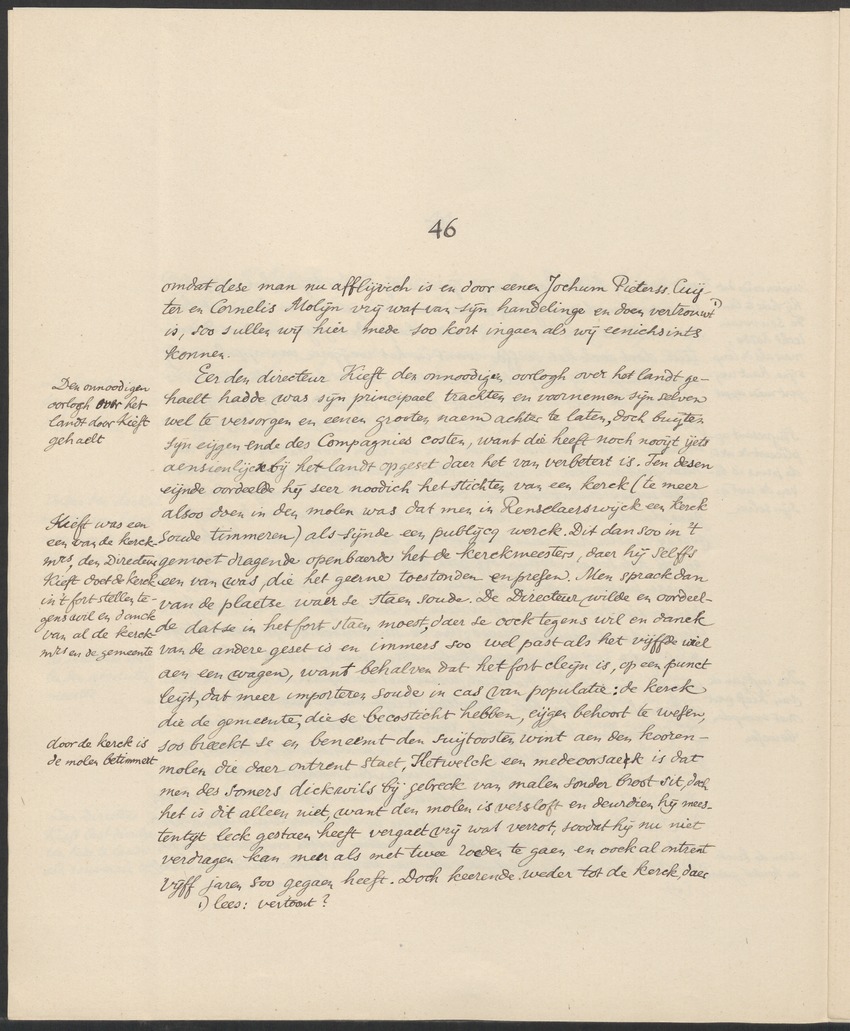 46
omdat dese man nu afflijvich is en door eenen Jochum Pieterss. Cuij-
ter en Cornelis Molijn vrij wat van sijn handelinge en doen vertrouwt 1)
is, soo sullen wij hier mede soo kort ingaen als wij eenichsints
konnen.
Eer den directeur Kieft den onnoodigen oorlogh over het landt ge-
haelt hadde was sijn principael trachten en voornemen sijn selven
wel te versorgen en eenen grooten naem achter te laten, doch buijten
sijn eijgen ende des Compagnies costen, want die heeft noch nooijt ijets
aensienlijcx bij het landt opgeset daer het van verbetert is. Ten desen
eijnde oordeelde hij seer noodich het stichten van een kerck (te meer
alsoo doen in den molen was dat men in Renselaerswijck een kerck
soude timmeren) als sijnde een publijcq werck. Dit dan soo in 't
gemoet dragende openbaerde het de kerckmeesters, daer hij selffs
een van was, die het geerne toestonden en presen. Men sprack dan
van de plaetse waer se staen soude. De Directeur wilde en oordeel-
de dat se in het fort staen moest, daer se oock tegens wil en danck
van de andere geset is en immers soo wel past als het vijffde wiel
aen een wagen, want behalven dat het fort cleijn is, op een punct
leijt, dat meer importeren soude in cas van populatie: de kerck
die de gemeente, die se becosticht hebben, eijgen behoort te wesen,
soo breeckt se en beneemt den suijtoosten wint aen den kooren-
molen die daer ontrent staet, Hetwelck een medeoorsaeck is dat
men des somers dickwils bij gebreck van malen sonder broot sit, doch
het is dit alleen niet, want den molen is versloft en deurdien hij mees-
tentijt leck gestaen heeft vergaet vrij wat verrot, soodat hij nu niet
verdragen kan meer als met twee roeden te gaen en oock al ontrent
vijff jaren soo gegaen heeft. Doch keerende weder tot de kerck, daer
1) lees: vertoont?
Den onnoodigen
oorlogh over het
landt door Kieft
gehaelt
Kieft was een
een van de kerck-
mrs, den Directeur
Kieft doet de kerck
in 't fort stellen te-
gens wil en danck
van al de kerck-
mrs en de gemeente
door de kerck is
de molen betimmert